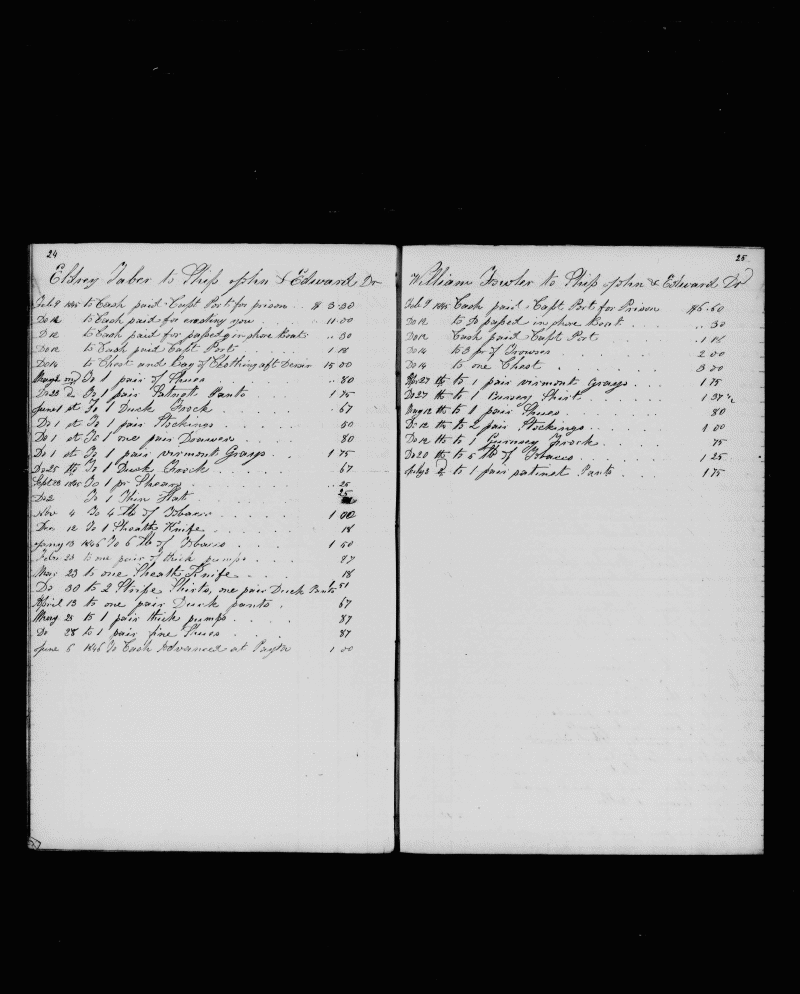 24
Eldrey Taber to Ship John & Edward Dr
Feb 9 1845 to Cash paid Capt Port for prison $ 3.30
Do 12 to Cash paid for arresting you 11.00
Do 12 to Cash paid for passedg in shore Boat .. 30
Do 12 to Cash paid Capt Port 1 18
Do 14 to Chest and Bag of Clothing aft Desur 15 00
To 1 pair of Shues .. 80
Do 22 To 1 pair Satnett Pants 1 75
June 1 st To 1 Duck Frock . 67
Do 1 st To 1 pair Stockings . 50
Do 1 st To 1 one pair Drawers . 80
Do 1 st To 1 pair virmont Grays . 1 75
Do 25 th To 1 Duck Frock . 67
Sept 28 1845 To 1 pr Shears .. 25
Do 2 To 1 Thin Hat 25
Nov 4 To 4 lb of Tobacco 1 00
Dec 12 To 1 Sheath Knife 18
1846 To 6 lb of Tobacco 1 50
Febu 23 to one pair of thick pumps 87
Mar 23 to one Sheath Knife 18
Do 30 to 2 Stripe Shirts, one pair Duck Pants 51
April 13 to one pair Duck pants . 67
May 28 to 1 pair thick pumps 87
Do 28 to 1 pair fine Shues 87
June 6 1846 To Cash Advanced at Payta 1 00
25
William Fowler to Ship John & Edward Dr
Feb 9 1845 Cash paid Capt Port for Prison $6.60
Do 12 to Do passed in shore Boat .. 30
Do 12 Cash paid Capt Port . 1 18
Do 14 to 3 pr of Trowses 2 00
Do 14 to one Chest 3 00
Apr 27 th to 1 pair virmont Grays 1 75
Do 27 th to 1 Shirt 1 37
Aug 12 th to 1 pair Shues 80
Do 12 th to 2 pair Stockings 1 00
Do 12 th to 1 Gurnsey Frock 75
Do 20 th to 5 lb of Tobacco 1 25
to 1 pair satinet Pants 1 75